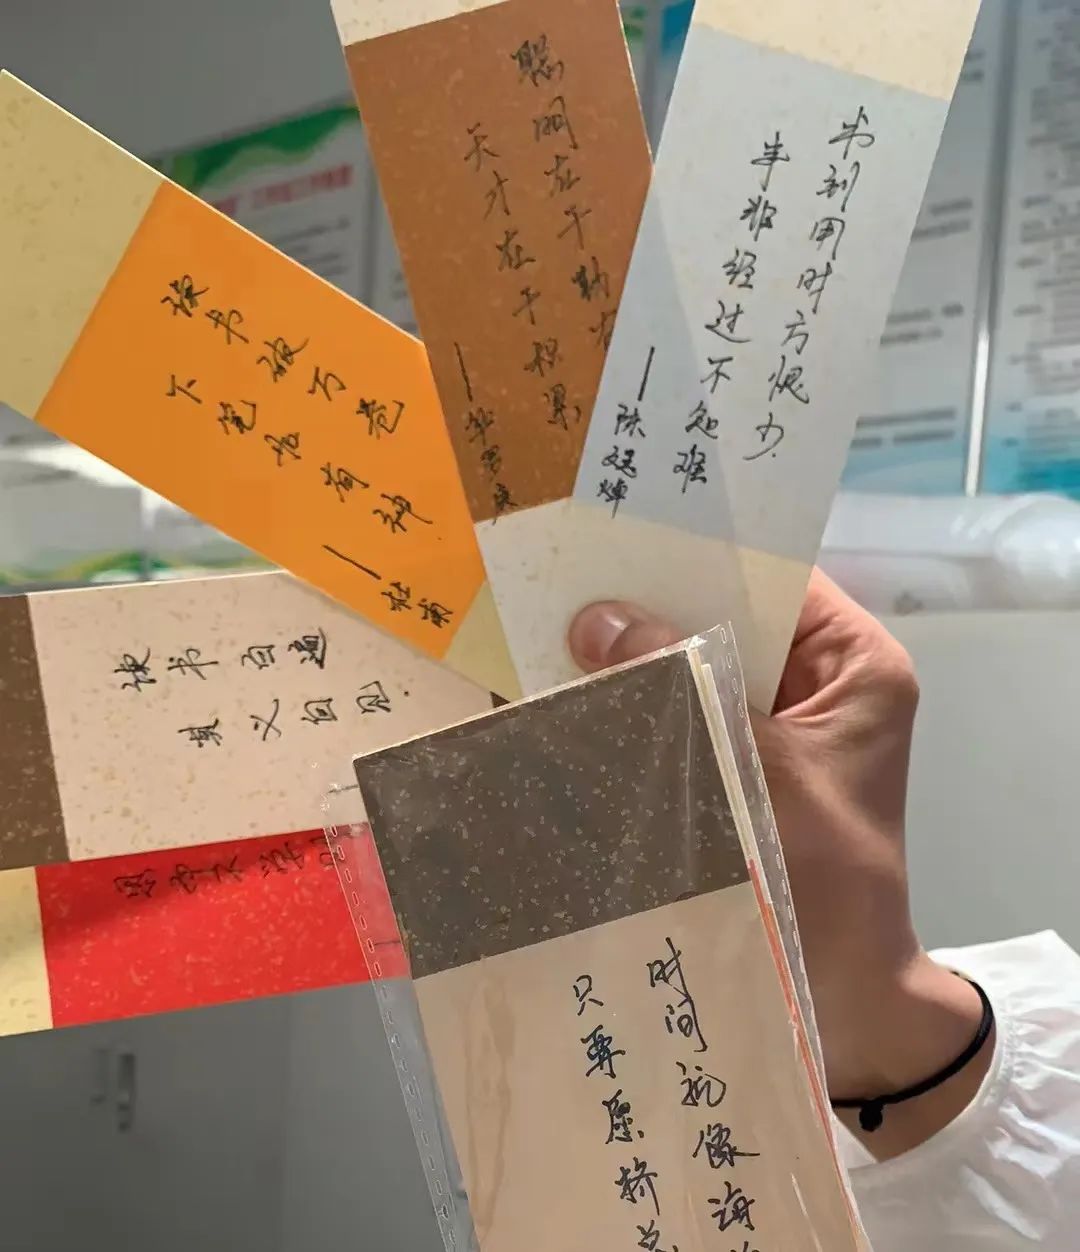 聪明在于勤
天才在于积累
——华罗庚
书到用时方愧少.
事非经过不知难
——陈
读书破万卷
下笔如有神
——杜甫
读书百遍
其义自见.
思而不学则
时间就像海
只要愿挤